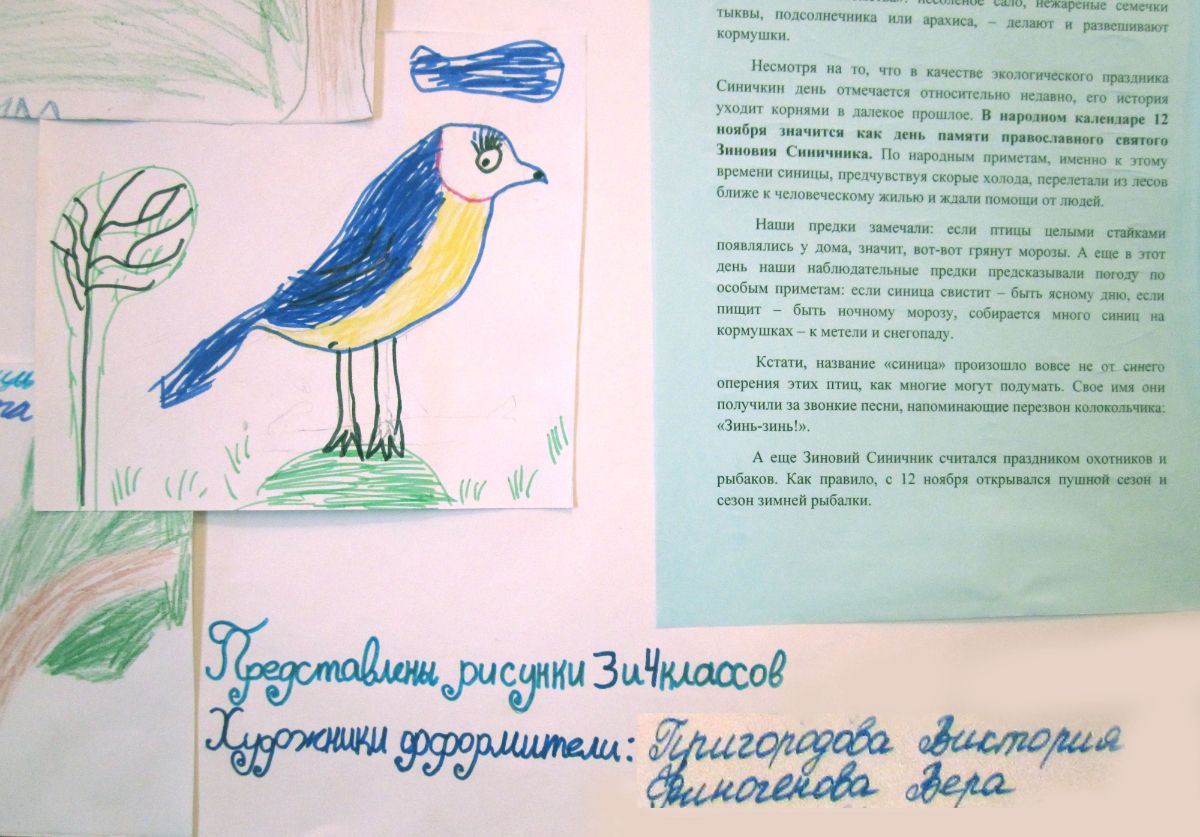 несоленое сало, нежареные семечки
тыквы, подсолнечника или арахиса, – делают и развешивают
кормушки.
Несмотря на то, что в качестве экологического праздника
Синичкин день отмечается относительно недавно, его история
уходит корнями в далекое прошлое. В народном календаре 12
ноября значится как день памяти православного святого
Зиновия Синичника. По народным приметам, именно к этому
времени синицы, предчувствуя скорые холода, перелетали из лесов
ближе к человеческому жилью и ждали помощи от людей.
Наши предки замечали: если птицы целыми стайками
появлялись у дома, значит, вот-вот грянут морозы. А еще в этот
день наши наблюдательные предки предсказывали погоду по
особым приметам: если синица свистит – быть ясному дню, если
пищит – быть ночному морозу, собирается много синиц на
кормушках – к метели и снегопаду.
Кстати, название «синица» произошло вовсе не от синего
оперения этих птиц, как многие могут подумать. Свое имя они
получили за звонкие песни, напоминающие перезвон колокольчика:
«Зинь-зинь!».
А еще Зиновий Синичник считался праздником охотников и
рыбаков. Как правило, с 12 ноября открывался пушной сезон и
сезон зимней рыбалки.
Представлены рисунки 3 и 4 классов
Художники оформители: Пригородова Виктория
Финогенова Вера